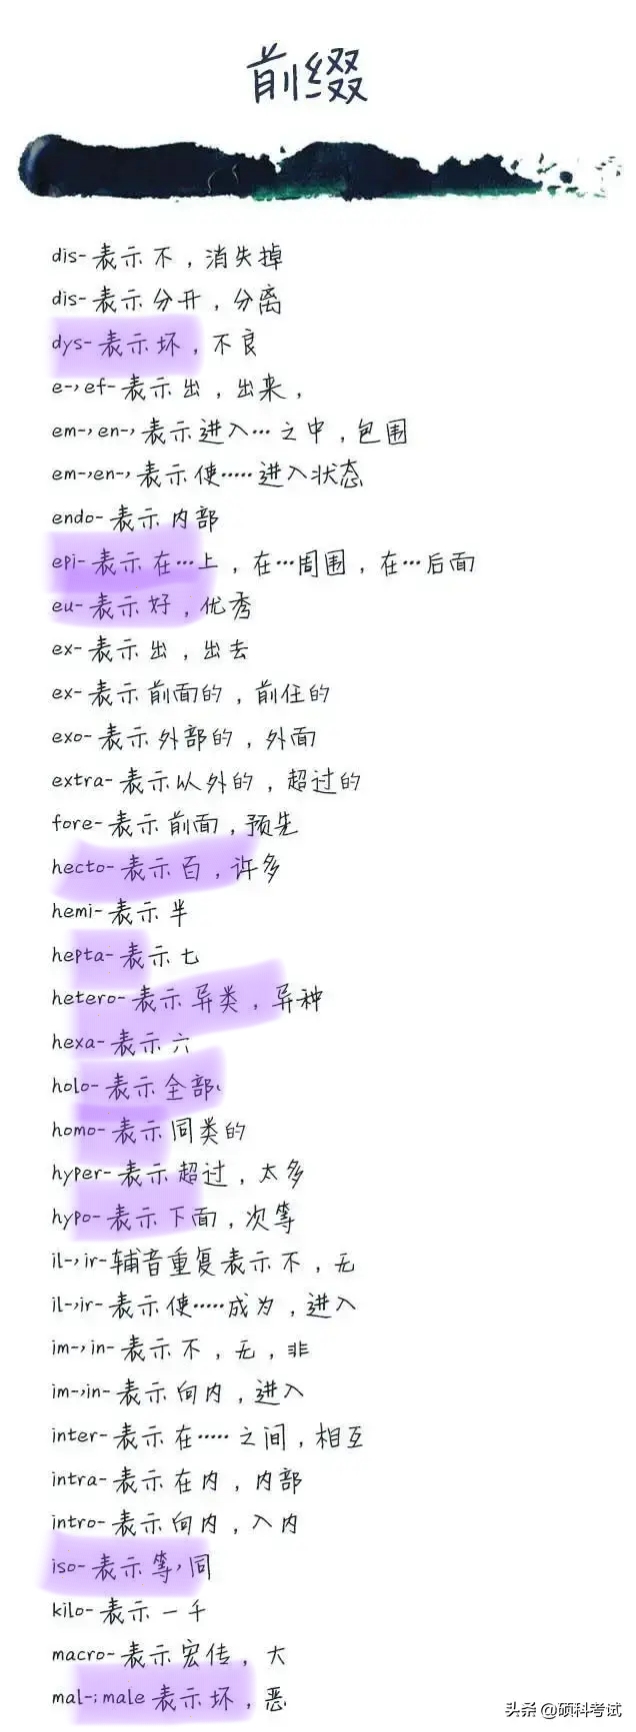 前缀
dis-表示不，消失掉
dis-表示分开，分离
dys-表示坏，不良
e-,ef-表示出，出来，
em-,en-,表示进入…之中，包围
em-,en-,表示使……进入状态
endo-表示内部
epi-表示在…上，在…周围，在…后面
eu-表示好，优秀
ex-表示出，出去
ex-表示前面的，前任的
exo-表示外部的，外面
extra-表示以外的，超过的
fore-表示前面，预先
hecto-表示百，许多
hemi-表示半
hepta-表示七
hetero-表示异类，异种
hexa-表示六
holo-表示全部、
homo-表示同类的
hyper-表示超过，太多
hypo-表示下面，次等
il-,ir-辅音重复表示不，无
il-,ir-表示使……成为，进入
im-,in-表示不，无，非
im-,in-表示向内，进入
inter-表示在……之间，相互
intra-表示在内，内部
intro-表示向内，入内
iso-表示等，同
kilo-表示一千
macro-表示宏传，大
mal-;male表示坏，恶
头条 @硕科考试